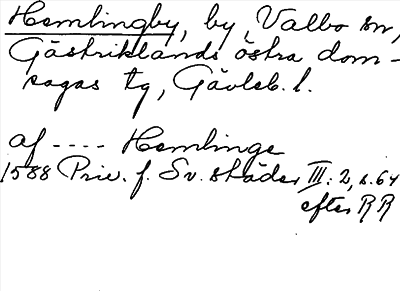 Hemlingby, by, Valbo sn,
Gästriklands östra dom-
sagas tg, Gävleb. l.
af ---- Hemlinge
1588 Priv. f. Sv. städer III: 2, s. 64
efter RR